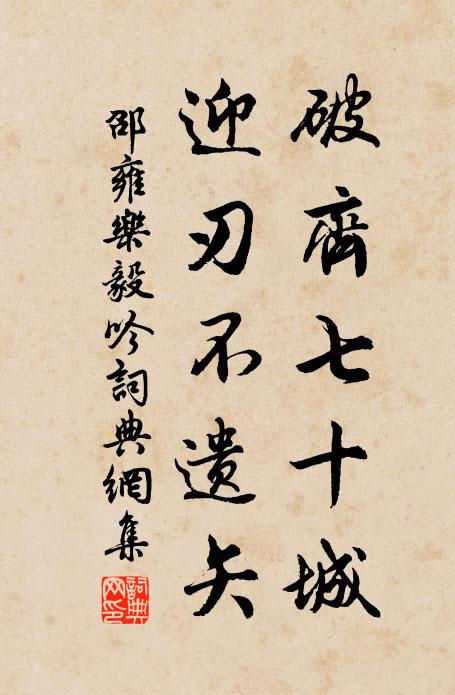 破齊七十城
迎刃不遺矢
邵雍樂毅吟詞典網集
詞典网印